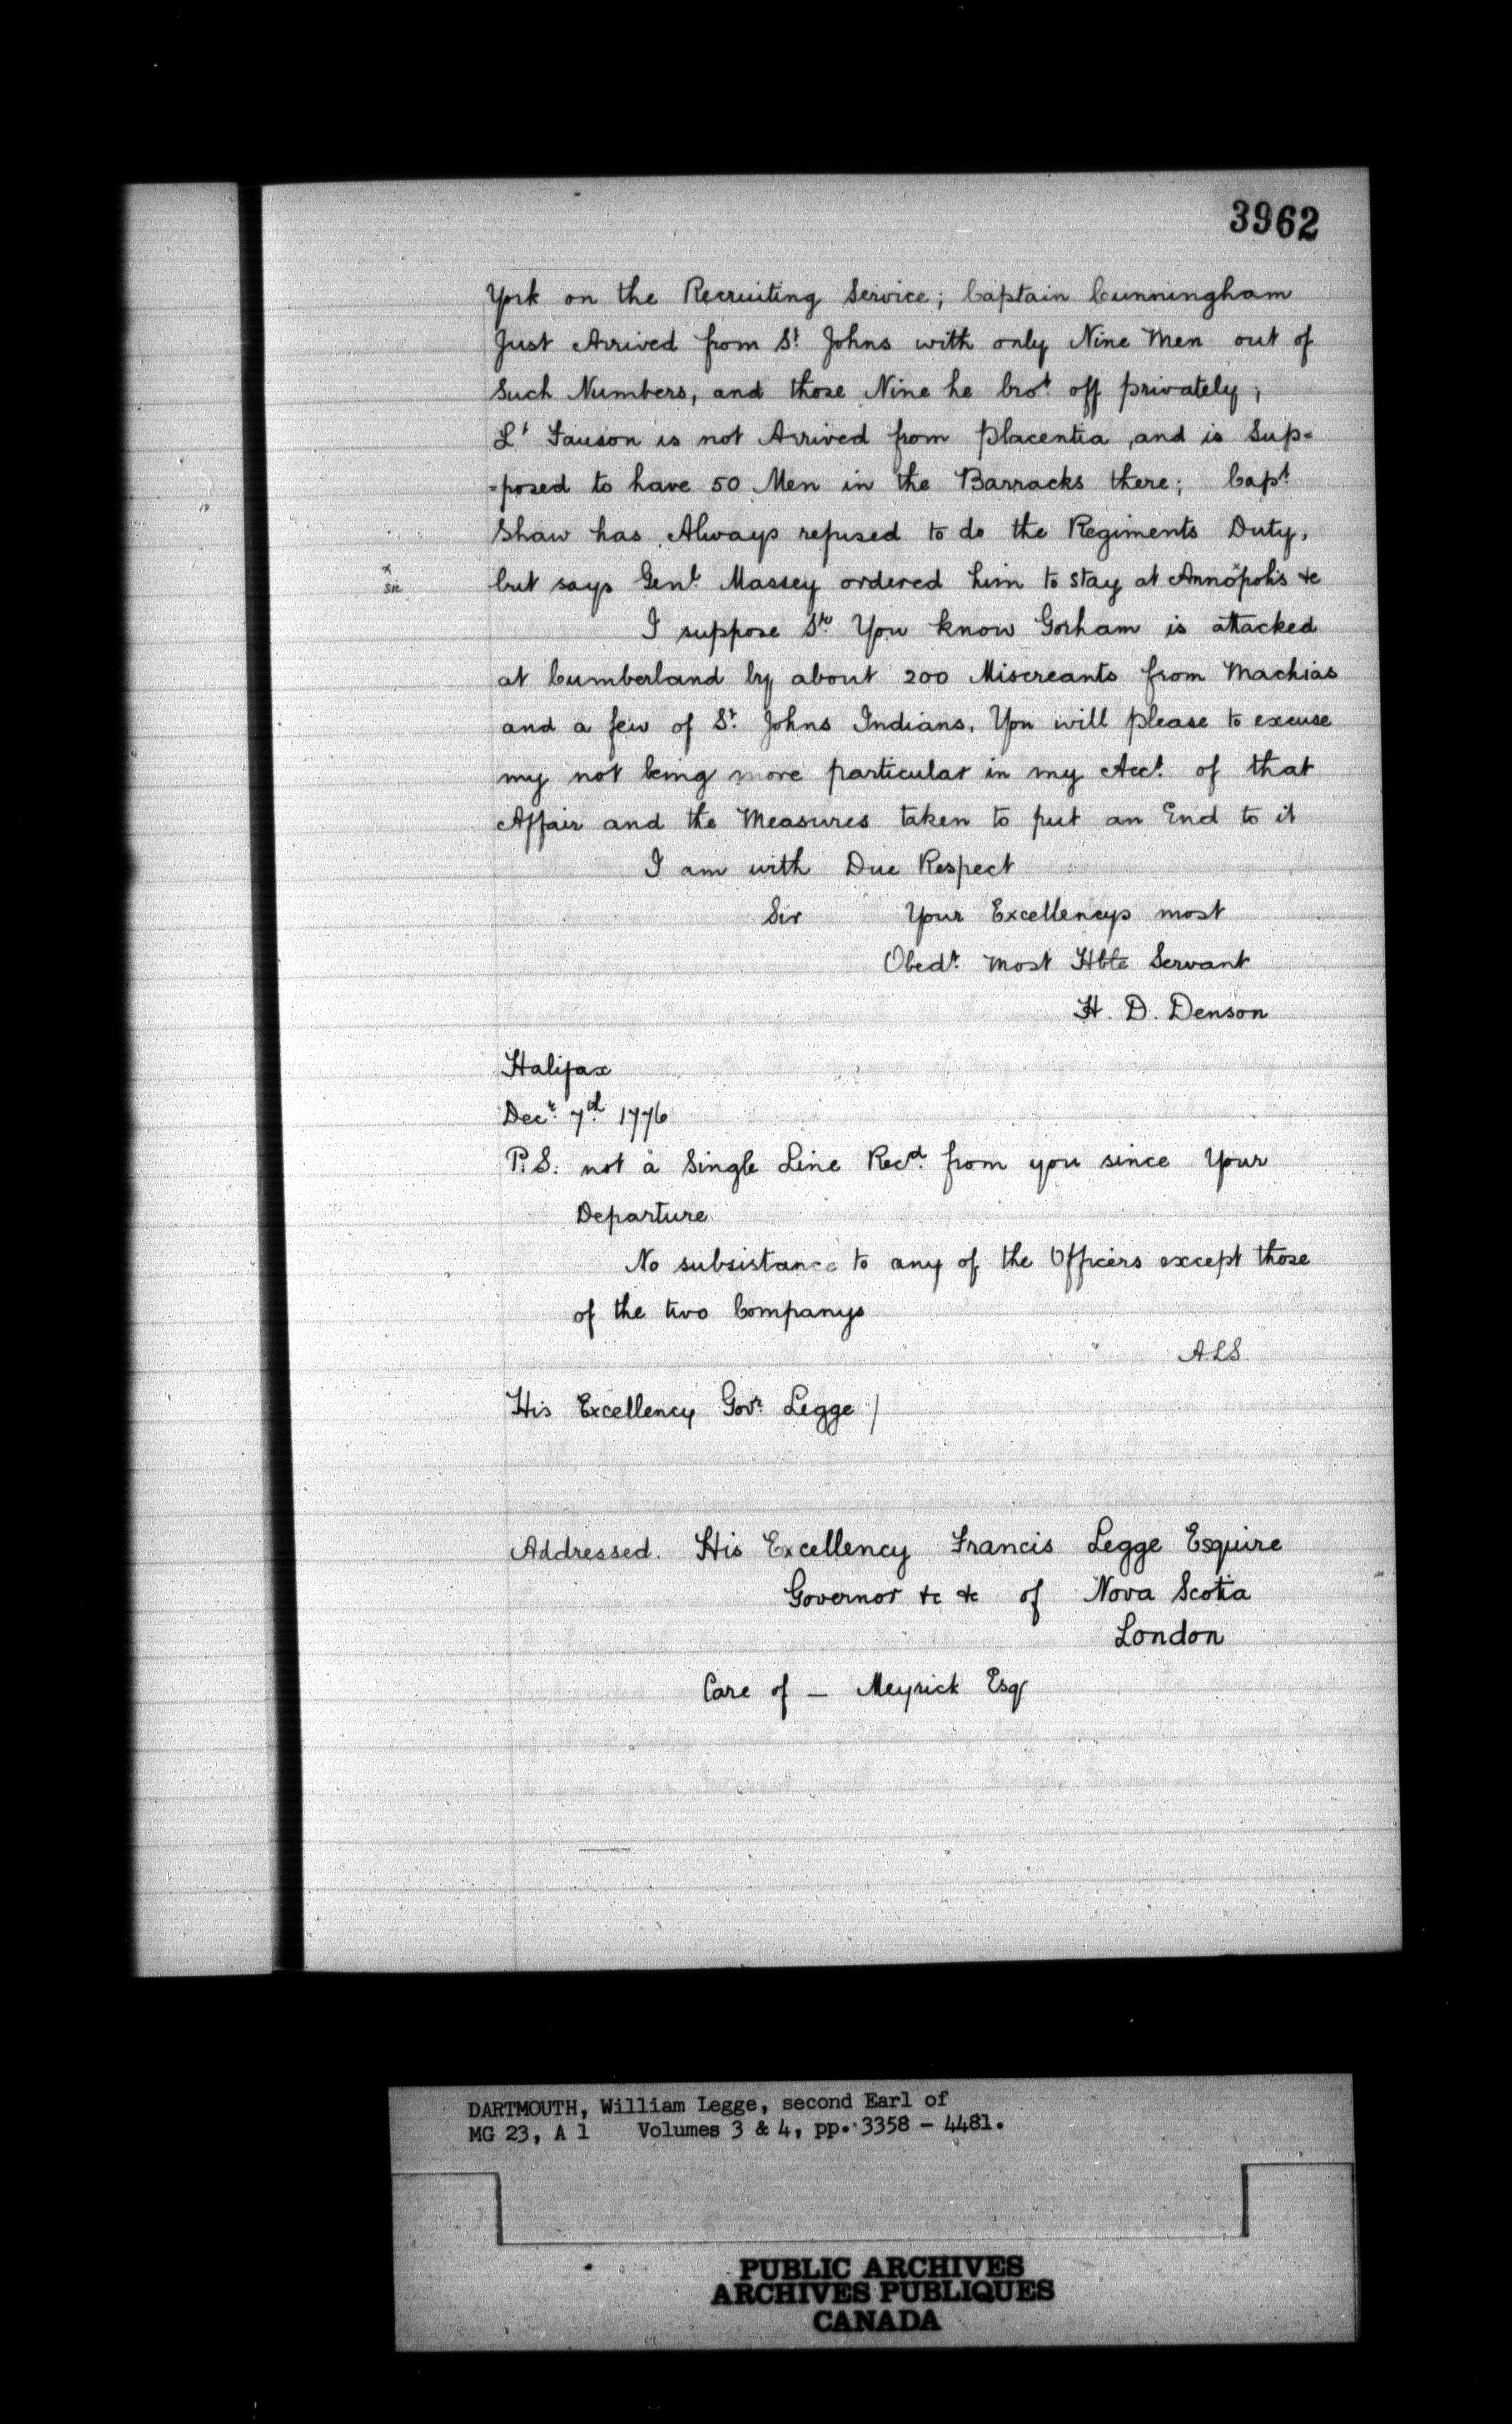 3962
York on the Recruiting Service; Captain Cunningham
Just Arrived from St. Johns with only Nine Men out of
Such Numbers, and those Nine he brot. off privately;
Lt Fauson is not Arrived from Placentia, and is Sup=
=posed to have 50 Men in the Barracks there; Capt
Shaw has Always refused to do the Regiments Duty,
x
sic
but says Genl. Massey ordered him to stay at Annxopolis &c
I suppose Sr. You know Gorham is attacked
at Cumberland by about 200 Miscreants from Machias
and a few of St. Johns Indians. You will please to excuse
my not being more particular in my Acct. of that
Affair and the Measures taken to put an End to it
I am with Due Respect
Sir Your Excellencys most
Obedt. most Hble Servant
H. D. Denson
Halifax
Decr. 7th. 1776
P.S. not a Single Line Recd. from you since Your
Departure
No subsistance to any of the Officers except those
of the two Companys
A.L.S.
His Excellency Govr. Legge /
Addressed. His Excellency Francis Legge Esquire
Governor &c &c of Nova Scotia
London
Care of — Meyrick Esqr
DARTMOUTH, William Legge, second Earl of
MG 23, A 1 Volumes 3 & 4, pp. 3358 - 4481.
PUBLIC ARCHIVES
ARCHIVES PUBLIQUES
CANADA